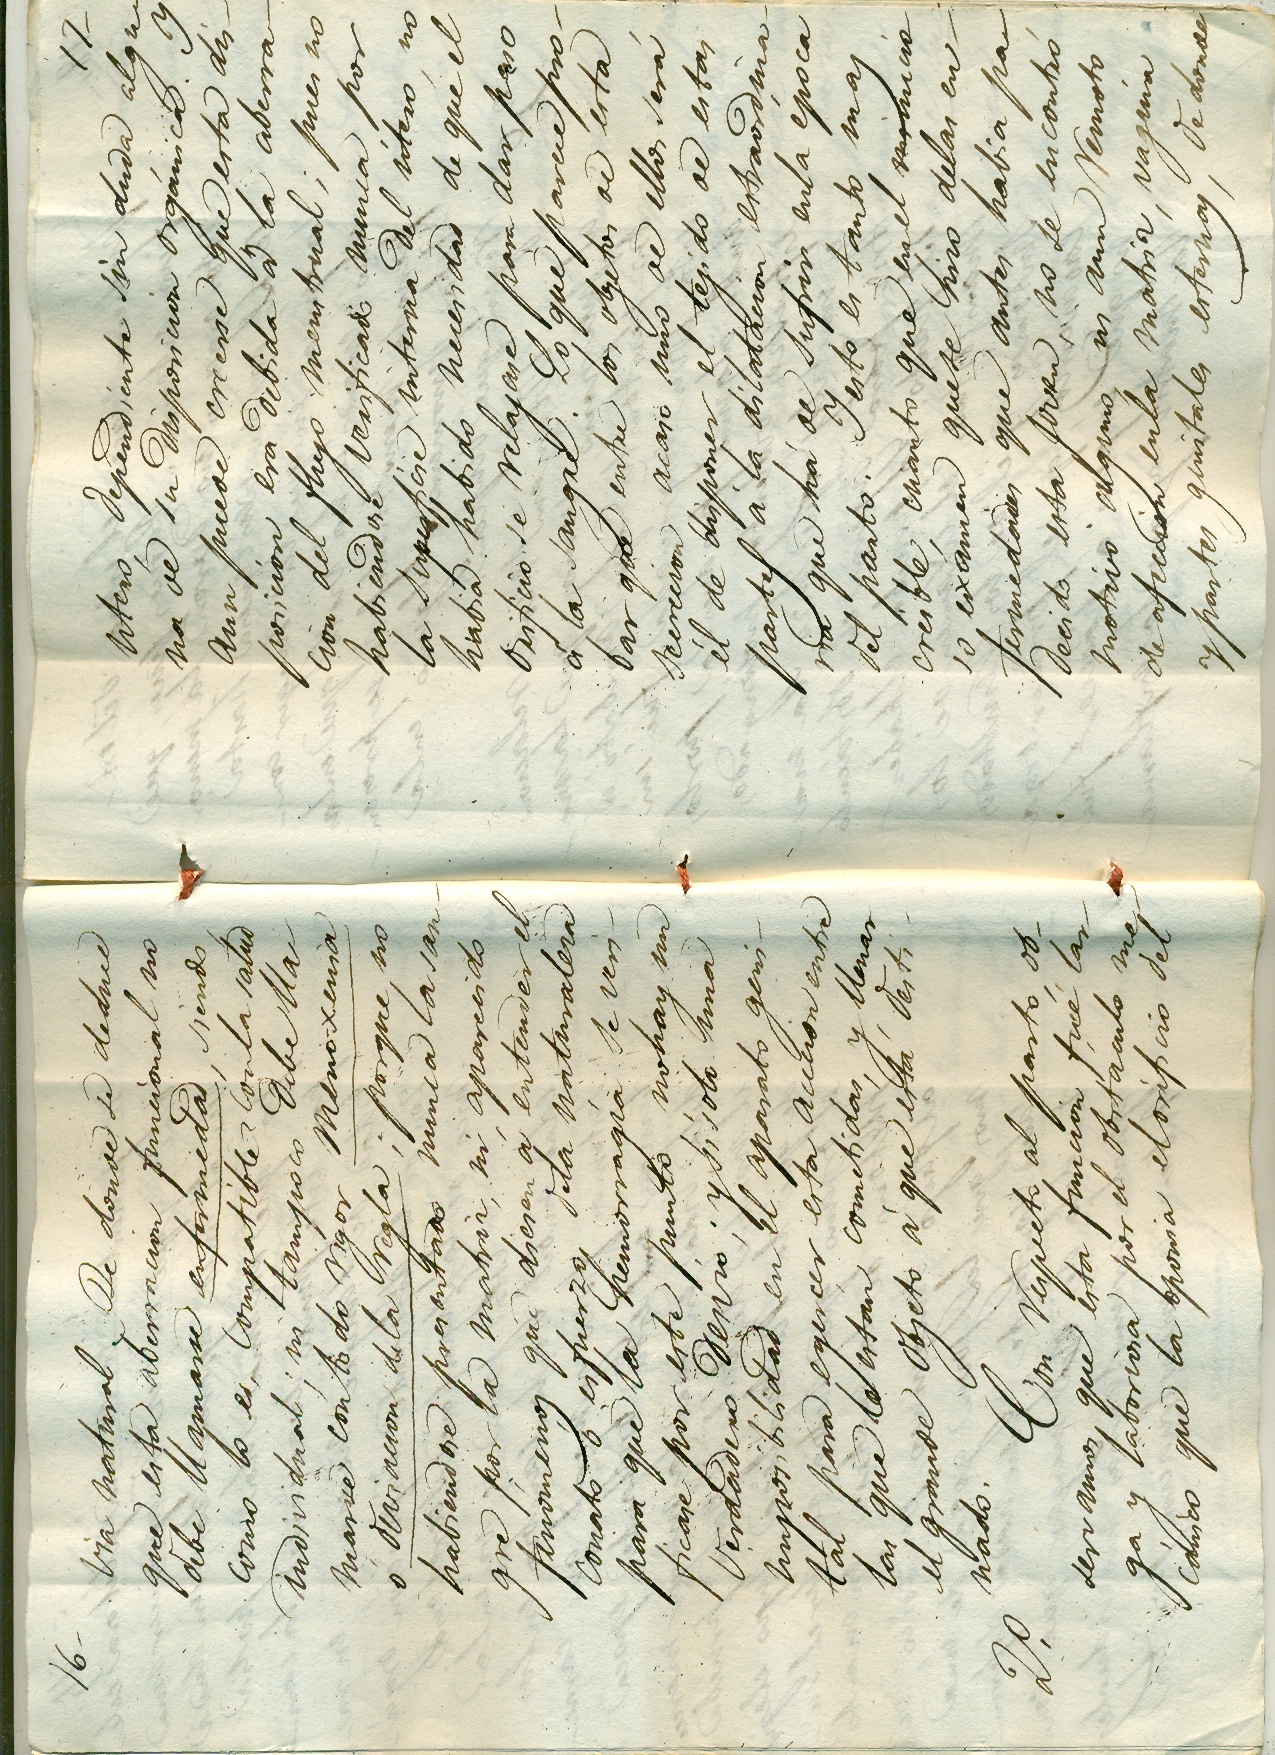 16-
via natural. De donde se deduce
que esta aberracion funcional no
debe llamarse enfermedad, siendo
como lo es, compatible con la salud
individual; ni tampoco debe lla-
marse con todo rigor Menoxenia
o desviacion de la regla; porque, no
habiendose presentado nunca la san-
gre por la matriz, ni aparecido
fenomenos que diesen a entender el
conato ó esfuerzo dela naturaleza
para que la hemorragia se veri-
ficase por este punto no hay un
verdadero desvio; y si solo una
imposibilidad en el aparato geni-
tal para egercer esta accion entre
las que le estan cometidas, y llenar
el grande objeto á que está desti-
nado.
2º Con respecto al parto ob-
servamos que esta funcion fué lar-
ga y laboriosa por el obstáculo me-
cánico que la oponia el orificio del
17-
utero dependiente sin duda algu-
na de su disposicion orgánica. Y
aun puede creerse que esta dis-
posicion era debida á la aberra-
cion del flujo menstrual; pues no
habiendose verificado nunca por
la superficie interna del útero no
habrá habido necesidad de que el
orificio se relajase para dar paso
á la sangre. Lo que parece pro-
bar que entre los objetos de esta
secrecion acaso uno de ellos será
el de disponer el tejido de estas
partes á la dilatacion estraordina-
ria que há de sufrir en la epoca
del parto. Y esto es tanto mas
creible, cuanto que en el
so exámen que se hizo delas en-
fermedades que antes habia pa-
decido esta joven, no se encontró
motivo alguno ni aun remoto
de afeccion en la matriz, vagina
y partes genitales esternas, de donde